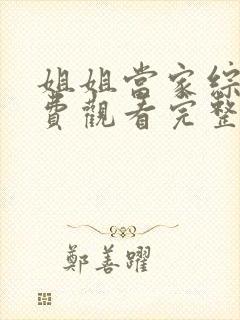 姐姐當家綜
費觀看完整
鄭善躍